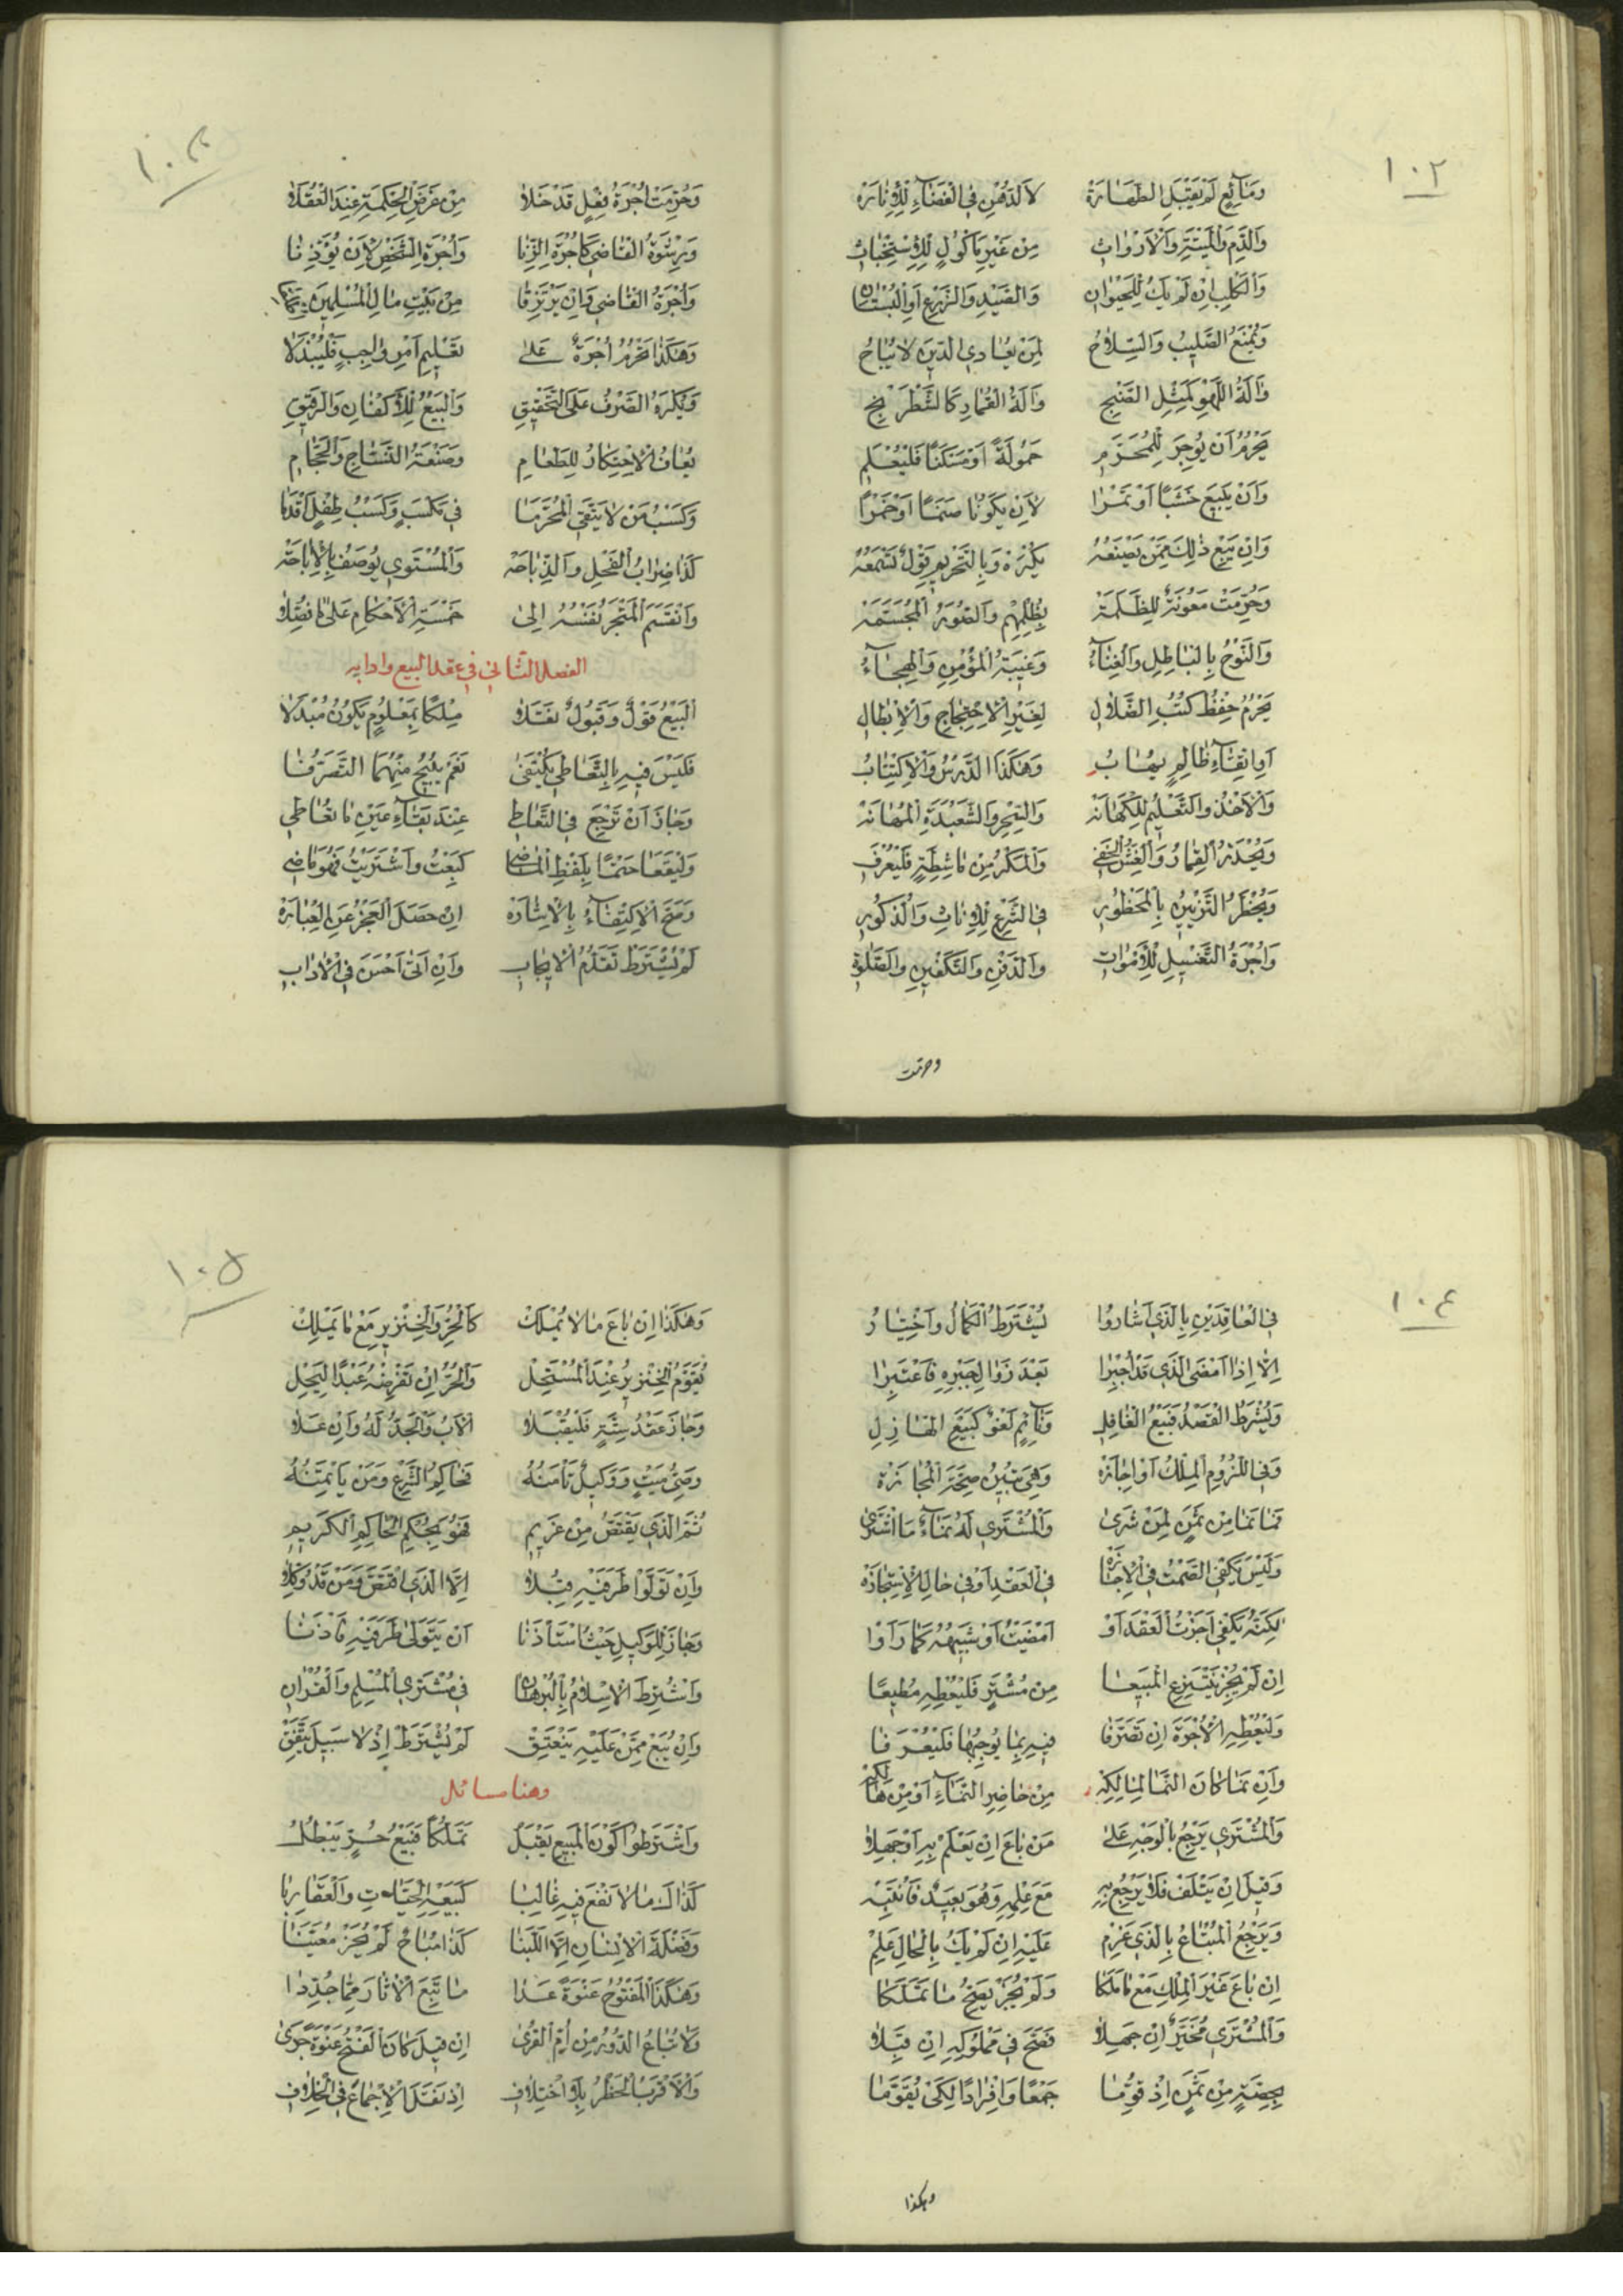 ١٠٢
وَمَائِعٍ لَمْ يَقْبَلِ الطَّهَارَةْ لَا الدُّهْنِ فِي الْفَضَاءِ لِلْإِنَارَةْ
وَالدَّمِ وَالْمَيْتَةِ وَالْأَرْوَاثِ مِنْ غَيْرِ مَأْكُولٍ لِلِاسْتِخْبَاثِ
وَالْكَلْبِ إِنْ لَمْ يَكُ لِلْحِيْوَانِ وَالصَّيْدِ وَالزَّرْعِ أَوِ الْبُسْتَانِ
وَيُمْنَعُ الصَّلِيبُ وَالسِّلَاحُ لِمَنْ يُعَادِي الدِّينَ لَا يُبَاحُ
وَآلَةُ اللَّهْوِ كَمِثْلِ الصَّنْجِ وَآلَةُ الْقِمَارِ كَالشَّطْرَنْجِ
يَحْرُمُ أَنْ يُوجَرَ لِلْمُحَرَّمِ حَمُولَةً أَوْ مَسْكَنًا فَلْيُعْلَمِ
وَأَنْ يَبِيعَ خَشَبًا أَوْ تَمْرًا لِأَنْ يَكُونَا صَنَمًا أَوْ خَمْرًا
وَإِنْ يَبِعْ ذٰلِكَ مِمَّنْ يَصْنَعُهْ يُكْرَهْ وَبِالتَّحْرِيمِ قَوْلٌ نَسْمَعُهْ
وَحُرِّمَتْ مَعُونَةٌ لِلظَّلَمَةْ بِظُلْمِهِمْ وَالصُّوَرُ الْمُجَسَّمَةْ
وَالنَّوْحُ بِالْبَاطِلِ وَالْغِنَاءُ وَغِيبَةُ الْمُؤْمِنِ وَالْهِجَاءُ
يَحْرُمُ حِفْظُ كُتُبِ الضَّلَالِ لِغَيْرِ الِاحْتِجَاجِ وَالْإِبْطَالِ
أَوِ اتِّقَاءِ ظَالِمٍ يُهَابُ وَهٰكَذَا الدَّرْسُ وَالِاكْتِتَابُ
وَالْأَخْذُ وَالتَّعْلِيمُ لِلْكَهَانَةْ وَالسِّحْرِ وَالشَّعْبَذَةِ الْمُهَانَةْ
وَيُحْذَرُ الْقِمَارُ وَالْغِشُّ الْخَفِي وَالْمَكْرُ مِنْ مَاشِطَةٍ فَلْيُعْرَفِ
وَيُحْظَرُ التَّزْيِينُ بِالْمَحْظُورِ فِي الشَّرْعِ لِلْإِنَاثِ وَالذُّكُورِ
وَأُجْرَةُ التَّغْسِيلِ لِلْأَمْوَاتِ وَالدَّفْنِ وَالتَّكْفِينِ وَالصَّلٰوةِ
وحرمت
١٠٣
وَحُرِّمَتْ أُجْرَةُ فِعْلٍ قَدْ خَلَا مِنْ غَرَضِ الْحِكْمَةِ عِنْدَ الْعُقَلَا
وَرِشْوَةُ الْقَاضِي كَأُجْرَةِ الزِّنَا وَأُجْرَةُ الشَّخْصِ لِأَنْ يُؤَذِّنَا
وَأُجْرَةُ الْقَاضِي وَإِنْ يَرْتَزِقَا مِنْ بَيْتِ مَالِ الْمُسْلِمِينَ
وَهٰكَذَا تَحْرُمُ أُجْرَةٌ عَلَى تَعْلِيمِ أَمْرٍ وَاجِبٍ فَلْيُبْذَلَا
وَيُكْرَهُ الصَّرْفُ عَلَى التَّحْقِيقِ وَالْبَيْعُ لِلْأَكْفَانِ وَالرَّقِيقِ
يُعَافُ الِاحْتِكَارُ لِلطَّعَامِ وَصَنْعَةُ النَّسَّاجِ وَالْحَجَّامِ
وَكَسْبُ مَنْ لَا يَتَّقِي الْمُحَرَّمَا فِي مَكْسَبٍ وَكَسْبُ طِفْلٍ أَقْدَمَا
كَذَا ضِرَابُ الْفَحْلِ وَالذِّبَاحَةْ وَالْمُسْتَوِي يُوصَفُ بِالْإِبَاحَةْ
وَانْقَسَمَ الْمَتْجَرُ نَفْسُهُ إِلَى خَمْسَةِ الْأَحْكَامِ عَلَى مَا فُصِّلَا
الفصل الثاني في عقد البيع وادابه
الْبَيْعُ قَوْلٌ وَقَبُولٌ نَقَلَا مِلْكًا بِمَعْلُومٍ يَكُونُ مُبْدَلَا
فَلَيْسَ فِيهِ بِالتَّعَاطِي يُكْتَفَى نَعَمْ يُبِيحُ مِنْهُمَا التَّصَرُّفَا
وَجَازَ أَنْ تَرْجِعَ فِي التَّعَاطِي عِنْدَ بَقَاءِ عَيْنِ مَا تُعَاطِي
وَلْيَقَعَا حَتْمًا بِلَفْظِ الْمَاضِي كَبِعْتُ وَاشْتَرَيْتُ فَهْوَ مَاضِي
وَصَحَّ الِاكْتِفَاءُ بِالْإِشَارَةْ إِنْ حَصَلَ الْعَجْزُ عَنِ الْعِبَارَةْ
لَمْ يُشْتَرَطْ تَقَدُّمُ الْإِيجَابِ وَإِنْ أَتَى أَحْسَنَ فِي الْآدَابِ
١٠٤
فِي الْعَاقِدَيْنِ بِالَّذِي أَشَارُوا يُشْتَرَطُ الْكَمَالُ وَاخْتِيَارُ
إِلَّا إِذَا أَمْضَى الَّذِي قَدْ أُجْبِرَا بَعْدَ زَوَالِ جَبْرِهِ فَاعْتُبِرَا
وَيُشْرَطُ الْقَصْدُ فَبَيْعُ الْغَافِلِ وَنَائِمٍ لَغْوٌ كَبَيْعِ الْهَازِلِ
وَفِي اللُّزُومِ الْمِلْكُ أَوْ إِجَازَةْ وَهْيَ تُبِينُ صِحَّةَ الْمُجَازَةْ
نَمَا نَمَا مِنْ ثَمَنٍ لِمَنْ شَرَى وَالْمُشْتَرِي لَهُ نَمَاءُ مَا اشْتَرَى
وَلَيْسَ يَكْفِي الصَّمْتُ فِي الْإِجَازَةْ فِي الْعَقْدِ أَوْ فِي حَالِ الِاسْتِجَازَةْ
لٰكِنَّهُ يَكْفِي أَجَزْتُ الْعَقْدَ أَوْ أَمْضَيْتُ أَوْ شَبِيهُهُ كَمَا رَأَوْا
إِنْ لَمْ يُجِزْ يَنْتَزِعِ الْمَبِيعَا مِنْ مُشْتَرٍ فَلْيُعْطِهِ مُطِيعًا
وَلْيُعْطِهِ الْأُجْرَةَ إِنْ تَصَرَّفَا فِيهِ بِمَا يُوجِبُهَا فَلْيُعْرَفَا
وَإِنْ نَمَا كَانَ النَّمَا لِمَالِكِهْ مِنْ حَاضِرِ النَّمَاءِ أَوْ مِنْ هَالِكِهْ
وَالْمُشْتَرِي يَرْجِعُ بِالْوَجْهِ عَلَى مَنْ بَاعَ إِنْ يَعْلَمْ بِهِ أَوْ جَهِلَا
وَقِيلَ إِنْ يَتْلَفْ فَلَا يَرْجِعُ بِهِ مَعْ عِلْمِهِ وَهُوَ بَعِيدٌ فَانْتَبِهْ
وَيَرْجِعُ الْمُبْتَاعُ بِالَّذِي غَرِمْ عَلَيْهِ إِنْ لَمْ يَكُ بِالْحَالِ عَلِمْ
إِنْ بَاعَ غَيْرَ الْمِلْكِ مَعْ مَا مَلَكَا وَلَمْ يُجَزْ يَصِحُّ مَا تَمَلَّكَا
وَالْمُشْتَرِي مُخَيَّرٌ إِنْ جَهِلَا فَصَحَّ فِي مَمْلُوكِهِ إِنْ قَبِلَا
بِحِصَّةٍ مِنْ ثَمَنٍ إِذْ قُوِّمَا جَمْعًا وَإِفْرَادًا لِكَيْ يُقَوَّمَا
وهكذا
١٠٥
وَهٰكَذَا إِنْ بَاعَ مَا لَا يُمْلَكْ كَالْحُرِّ وَالْخِنْزِيرِ مَعْ مَا يَمْلِكْ
يُقَوَّمُ الْخِنْزِيرُ عِنْدَ الْمُسْتَحِلْ وَالْحُرُّ إِنْ تَفْرِضْهُ عَبْدًا لِيَحِلْ
وَجَازَ عَقْدُ سِتَّةٍ فَلْيُقْبَلَا الْأَبُ وَالْجَدُّ لَهُ وَإِنْ عَلَا
وَصِيُّ مَيْتٍ وَوَكِيلٌ تَأْمَنُهْ فَحَاكِمُ الشَّرْعِ وَمَنْ يَأْتَمِنُهْ
ثُمَّ الَّذِي يَقْتَصُّ مِنْ غَرِيمِ فَهْوَ بِحُكْمِ الْحَاكِمِ الْكَرِيمِ
وَإِنْ تَوَلَّوْا طَرَفَيْهِ قُبِلَا إِلَّا الَّذِي اقْتَصَّ وَمَنْ قَدْ وُكِّلَا
وَجَازَ لِلْوَكِيلِ حَيْثُ اسْتَأْذَنَا أَنْ يَتَوَلَّى طَرَفَيْهِ فَأَذِنَا
وَاشْتُرِطَ الْإِسْلَامُ بِالْبُرْهَانِ فِي مُشْتَرِي الْمُسْلِمِ وَالْقُرْآنِ
وَإِنْ يُبَعْ مِمَّنْ عَلَيْهِ يَنْعَتِقْ لَمْ يُشْتَرَطْ إِذْ لَا سَبِيلَ يَتَّفِقْ
وهنا مسائل
وَاشْتَرَطُوا كَوْنَ الْمَبِيعِ يَقْبَلُ تَمَلُّكًا فَبَيْعُ حُرٍّ يَبْطُلُ
كَذَاكَ مَا لَا نَفْعَ فِيهِ غَالِبَا كَبَيْعِهِ الْحَيَّاتِ وَالْعَقَارِبَا
وَفَضْلَةَ الْإِنْسَانِ إِلَّا اللَّبَنَا كَذَا مُبَاحٌ لَمْ يُحَزْ مُعَيَّنَا
وَهٰكَذَا الْمَفْتُوحُ عَنْوَةً عَدَا مَا تَبِعَ الْآثَارَ مِمَّا جُدِّدَا
وَلَا تُبَاعُ الدُّورُ مِنْ أُمِّ الْقُرَى إِنْ قِيلَ كَانَ الْفَتْحُ عَنْوَةً جَرَى
وَالْأَقْرَبُ الْحَظْرُ بِلَا اخْتِلَافِ إِذْ نَقَلَ الْإِجْمَاعَ فِي الْخِلَافِ